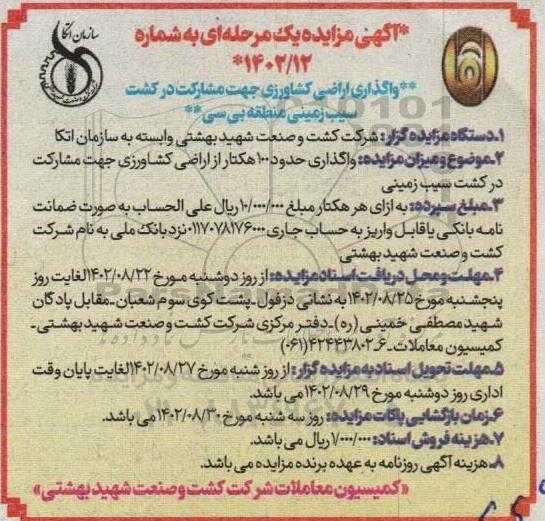 سازمان اتکا
*آگهی مزایده یک مرحله‌ای به شماره
۱۴۰۲/۱۲*
**واگذاری اراضی کشاورزی جهت مشارکت در کشت
سیب زمینی منطقه بی سی**
۱ـ دستگاه مزایده گزار: شرکت کشت و صنعت شهید بهشتی وابسته به سازمان اتکا
۲ـ موضوع و میزان مزایده: واگذاری حدود ۱۰۰ هکتار از اراضی کشاورزی جهت مشارکت
در کشت سیب زمینی
۳ـ مبلغ سپرده: به ازای هر هکتار مبلغ ۱۰/۰۰۰/۰۰۰ ریال علی الحساب به صورت ضمانت
نامه بانکی یا قابل واریز به حساب جاری ۰۱۱۷۰۷۸۱۷۶۰۰۰ نزد بانک ملی به نام شرکت
کشت و صنعت شهید بهشتی
۴ـ مهلت و محل دریافت اسناد مزایده: از روز دوشنبه مورخ ۱۴۰۲/۰۸/۲۲ لغایت روز
پنجشنبه مورخ ۱۴۰۲/۰۸/۲۵ به نشانی دزفول ـ پشت کوی سوم شعبان ـ مقابل پادگان
شهید مصطفی خمینی (ره) ـ دفتر مرکزی شرکت کشت و صنعت شهید بهشتی ـ
کمیسیون معاملات ـ ۶ـ۴۲۴۴۳۸۰۲ (۰۶۱)
۵ـ مهلت تحویل اسناد به مزایده گزار: از روز شنبه مورخ ۱۴۰۲/۰۸/۲۷ لغایت پایان وقت
اداری روز دوشنبه مورخ ۱۴۰۲/۰۸/۲۹ می باشد.
۶ـ زمان بازگشایی پاکات مزایده: روز سه شنبه مورخ ۱۴۰۲/۰۸/۳۰ می باشد.
۷ـ هزینه فروش اسناد: ۱/۰۰۰/۰۰۰ ریال می باشد.
۸ـ هزینه آگهی روزنامه به عهده برنده مزایده می باشد.
«کمیسیون معاملات شرکت کشت و صنعت شهید بهشتی»